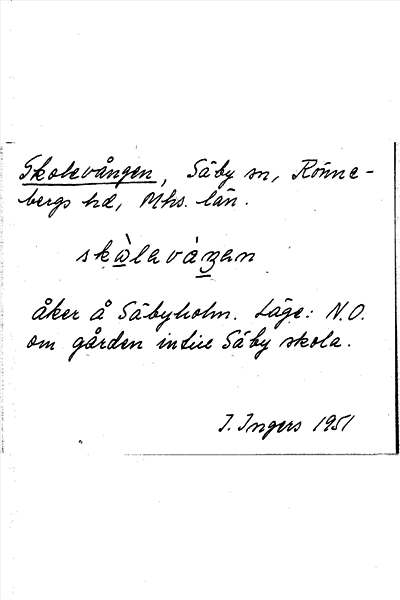 Skolevången, Säby sn, Rönne-
bergs hd, Mhs. län.
skὰlaváŋan
åker å Säbyholm. Läge: N.O.
om gården intill Säby skola.
I. Ingers 1951